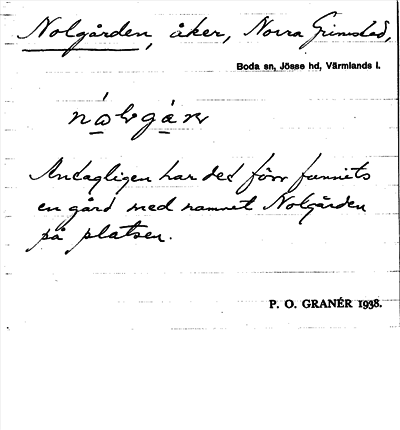 Nolgården, åker, Norra Grimstad,
Boda sn, Jösse hd, Värmlands l.
Antagligen har det förr funnits
en gård med namnet Nolgården
på platsen.
P. O. GRANÉR 1938.